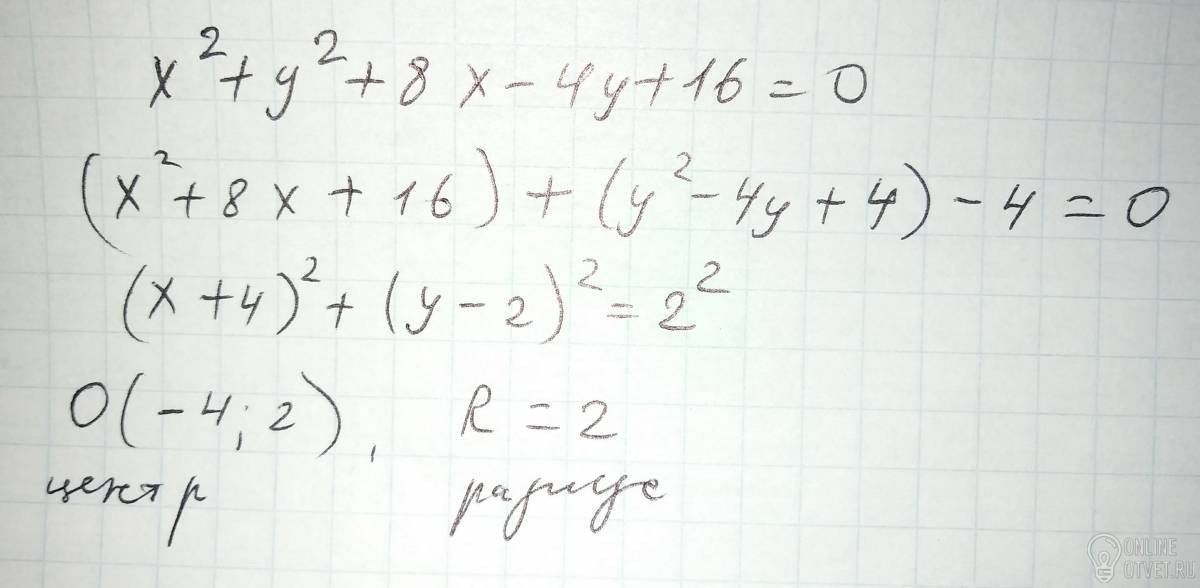 x² + y² + 8x - 4y + 16 = 0
(x² + 8x + 16) + (y² - 4y + 4) - 4 = 0
(x + 4)² + (y - 2)² = 2²
O(-4; 2), R = 2
центр радиус
ONLINE
OTVET.RU